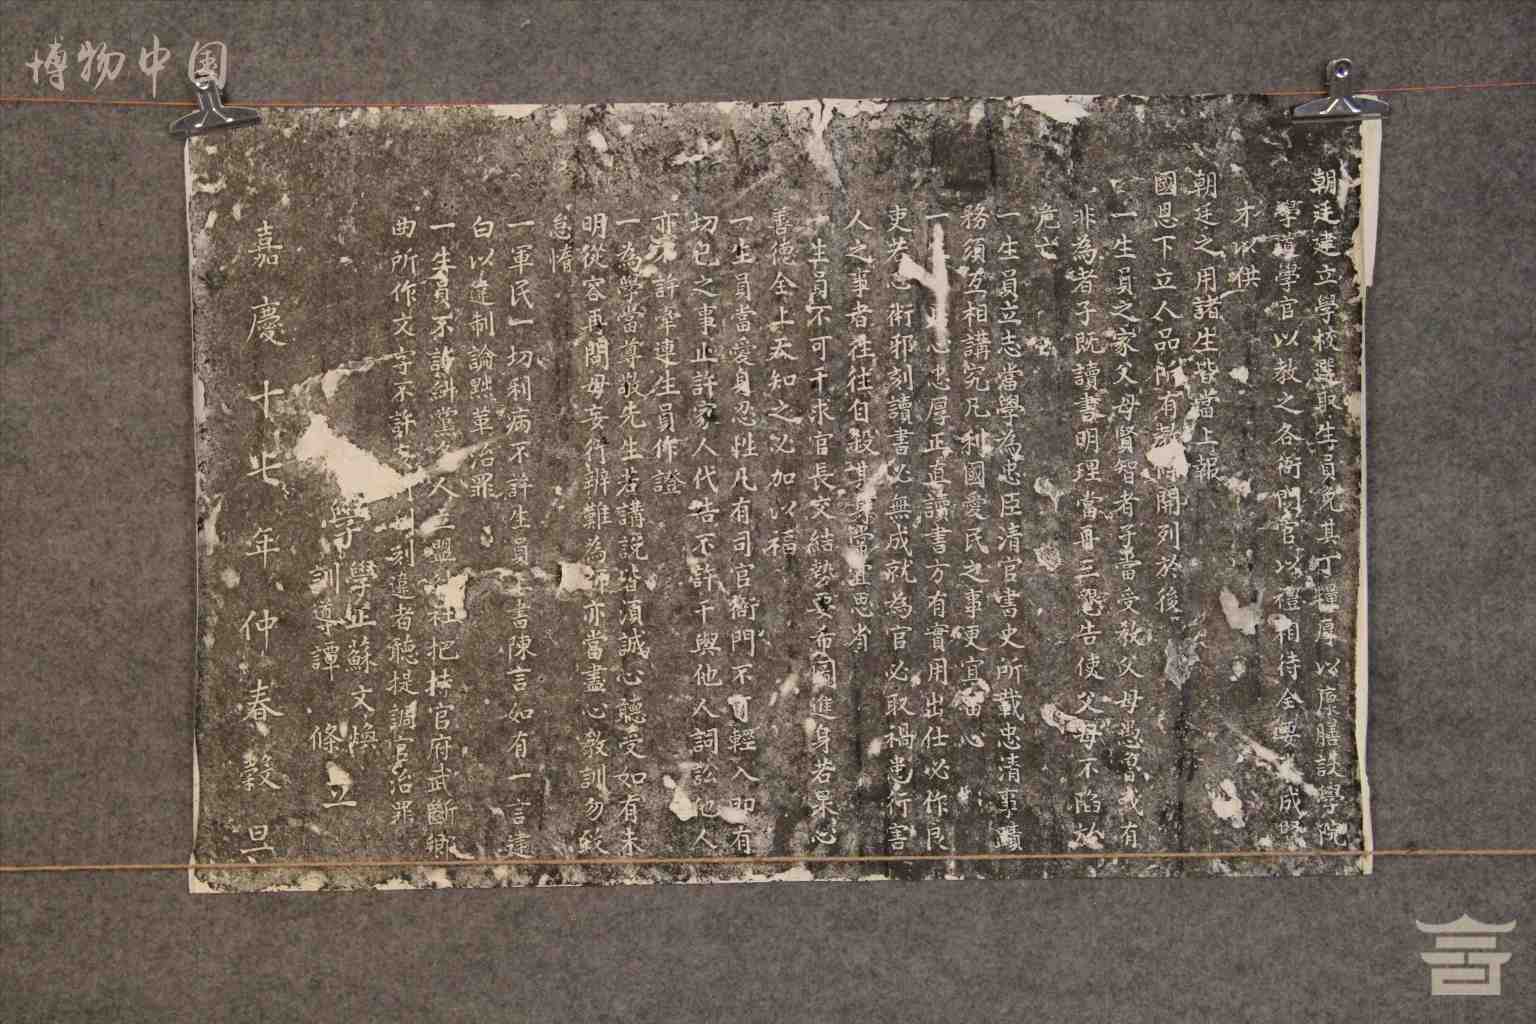 博物中国
朝廷建立學校選取生員免其丁糧厚以廩膳設學院
學道學官以教之各衙門官以禮相待全要成賢
才以供
朝廷之用諸生皆當上報
國恩下立人品所有教條開列於後
一生員之家父母賢智者子當受教父母愚魯或有
非為者子既讀書明理當再三懇告使父母不陷於
危亡
一生員立志當學為忠臣清官書史所載忠清事蹟
務須互相講究凡利國愛民之事更宜留心
一生員居心忠厚正直讀書方有實用出仕必作良
吏若心術邪刻讀書必無成就為官必取禍患行害
人之事者往往自殺其身常宜思省
一生員不可干求官長交結勢要希圖進身若果心
善德全上天知之必加以福
一生員當愛身忍性凡有司官衙門不可輕入即有
切己之事止許家人代告不許干與他人詞訟他人
亦不許牽連生員作證
一為學當尊敬先生若講說皆須誠心聽受如有未
明從容再問毋妄行辨難為師亦當盡心教訓勿致
怠惰
一軍民一切利病不許生員上書陳言如有一言建
白以違制論黜革治罪
一生員不許糾黨多人立盟結社把持官府武斷鄉
曲所作文字不許刊刻違者聽提調官治罪
學 學正蘇文煥
訓導譚 條 立
嘉慶十七年仲春穀旦